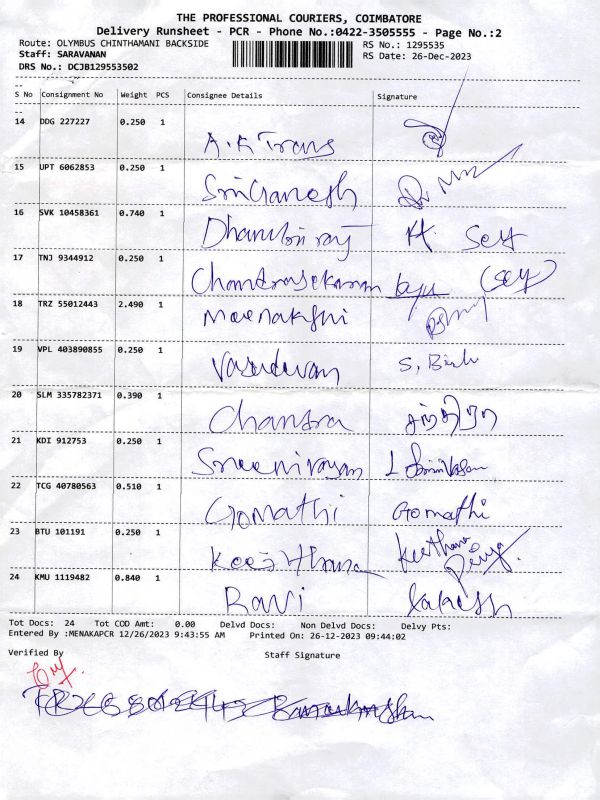 THE PROFESSIONAL COURIERS, COIMBATORE
Delivery Runsheet - PCR - Phone No.:0422-3505555 - Page No.:2
Route: OLYMBUS CHINTHAMANI BACKSIDE RS No.: 1295535
Staff: SARAVANAN RS Date: 26-Dec-2023
DRS No.: DCJB129553502
S No Consignment No Weight PCS Consignee Details Signature
14 DDG 227227 0.250 1 A.K Trans
15 UPT 6062853 0.250 1 Sri Ganesh
16 SVK 10458361 0.740 1 Dhanubi raj
17 TNJ 9344912 0.250 1 Chandrasekaran
18 TRZ 55012443 2.490 1 Meenakshi
19 VPL 403890855 0.250 1 Vasudevan
20 SLM 335782371 0.390 1 Chandra சந்திரா
21 KDI 912753 0.250 1 Sreenivasan L Srinivasan
22 TCG 40780563 0.510 1 Gomathi Gomathi
23 BTU 101191 0.250 1 Keerthana Keerthana Priya
24 KMU 1119482 0.840 1 Ravi
Tot Docs: 24 Tot COD Amt: 0.00 Delvd Docs: Non Delvd Docs: Delvy Pts:
Entered By :MENAKAPCR 12/26/2023 9:43:55 AM Printed On: 26-12-2023 09:44:02
Verified By Staff Signature